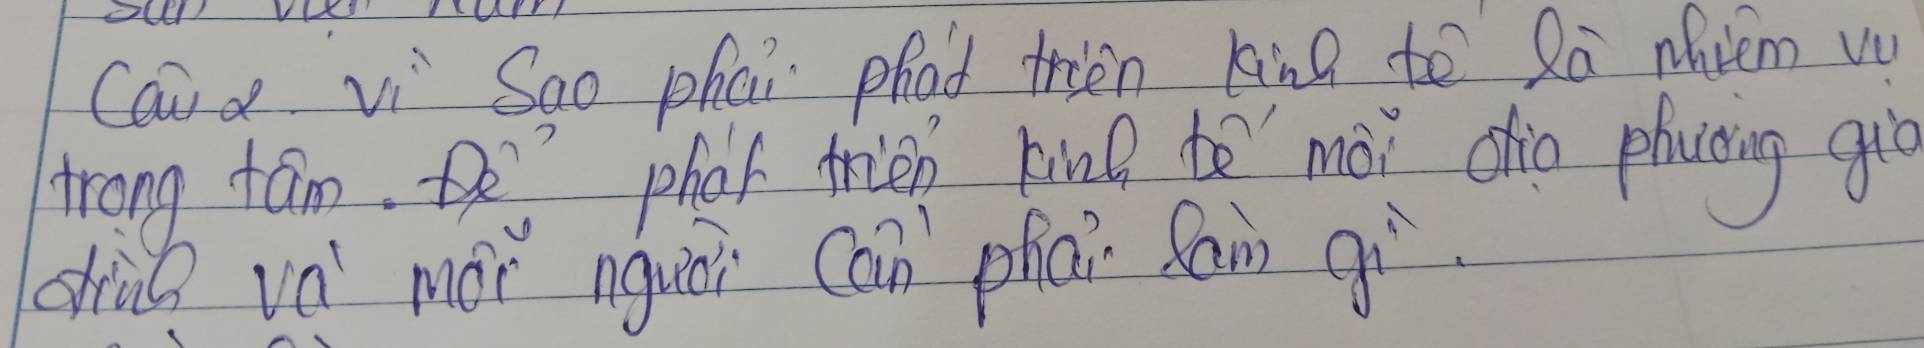 Câu 2. Vì Sao phải phát triển kinh tế là nhiệm vụ
trọng tâm. Để phát triển kinh tế mỗi địa phương gia
đình và mỗi người cần phải làm gì.